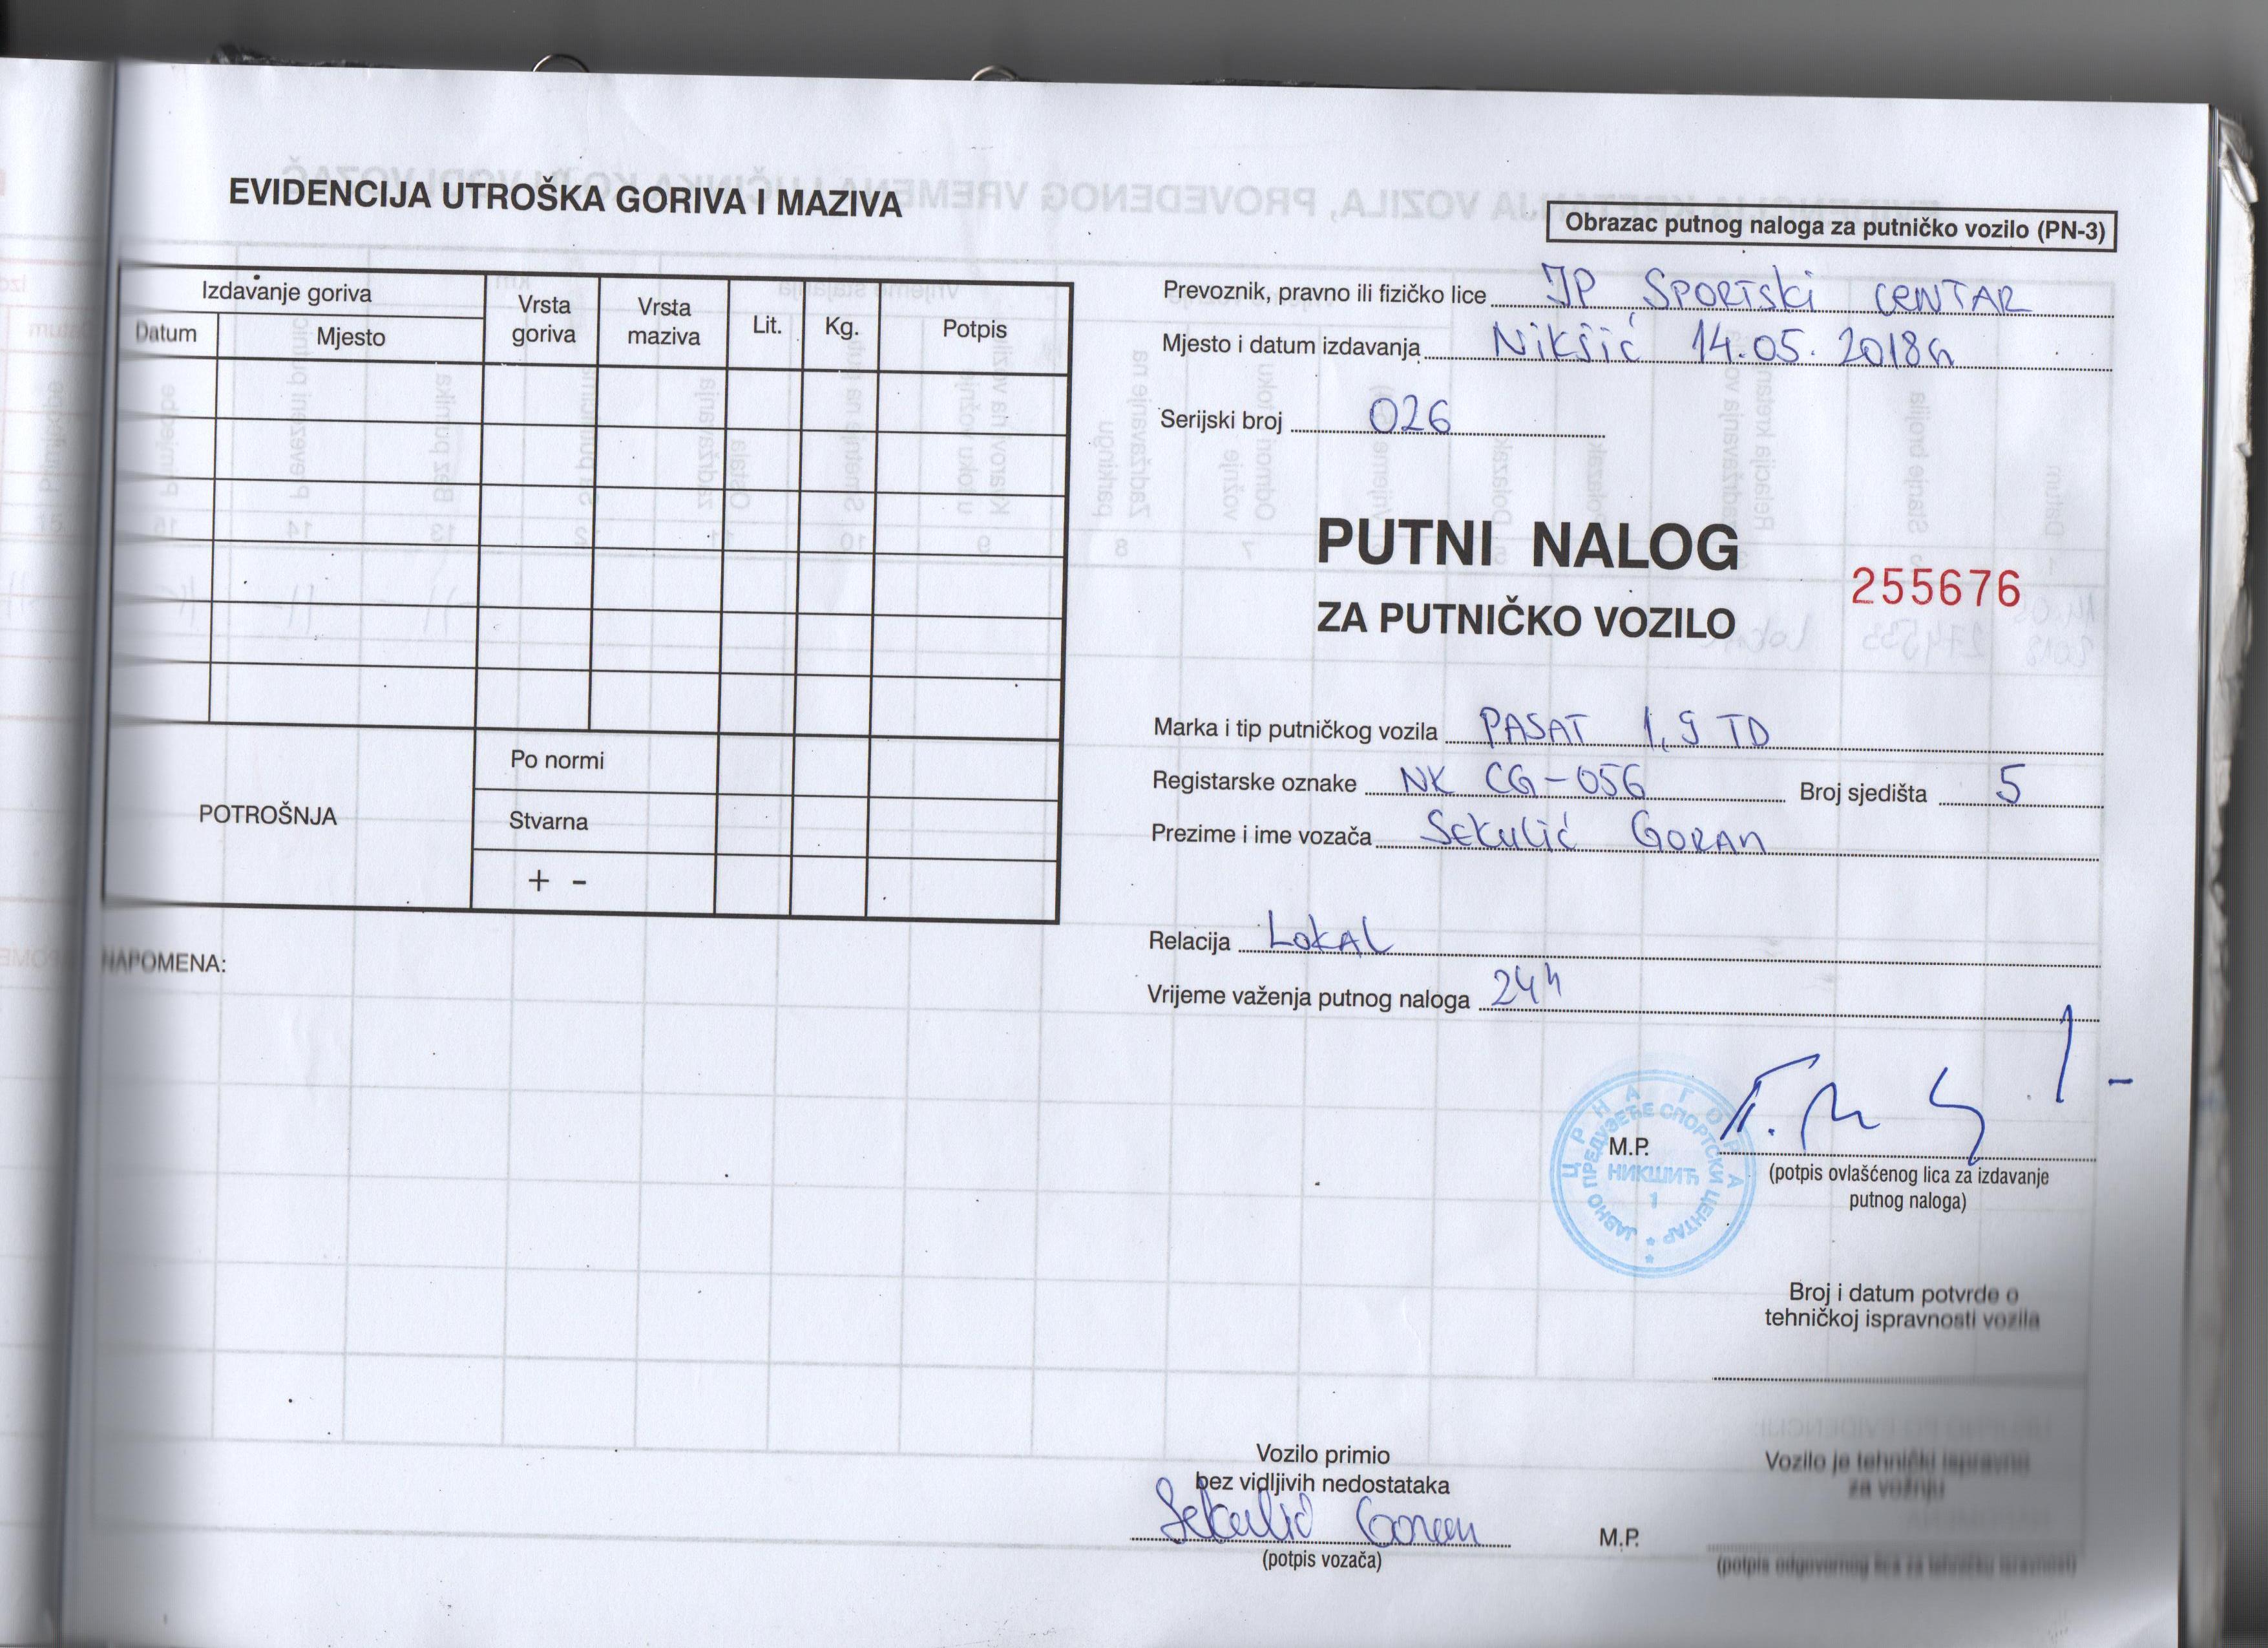 EVIDENCIJA UTROŠKA GORIVA I MAZIVA
Izdavanje goriva
Datum
Mjesto
Vrsta
goriva
Vrsta
maziva
Lit.
Kg.
Potpis
POTROŠNJA
Po normi
Stvarna
+ -
NAPOMENA:
Obrazac putnog naloga za putničko vozilo (PN-3)
Prevoznik, pravno ili fizičko lice JP SPORTSki CENTAR
Mjesto i datum izdavanja Nikšić 14.05.2018g
Serijski broj 026
PUTNI NALOG
255676
ZA PUTNIČKO VOZILO
Marka i tip putničkog vozila PASAT 1,9 TD
Registarske oznake NK CG-056 Broj sjedišta 5
Prezime i ime vozača Sekulić Goran
Relacija LOKAL
Vrijeme važenja putnog naloga 24h
ЦРНА ГОРА
ЈАВНО ПРЕДУЗЕЋЕ СПОРТСКИ ЦЕНТАР
НИКШИЋ
1
M.P.
(potpis ovlašćenog lica za izdavanje
putnog naloga)
Broj i datum potvrde o
tehničkoj ispravnosti vozila
Vozilo primio
bez vidljivih nedostataka
Sekulić Goran
(potpis vozača)
Vozilo je tehnički ispravno
za vožnju
M.P.
(potpis odgovornog lica za tehničku ispravnost)